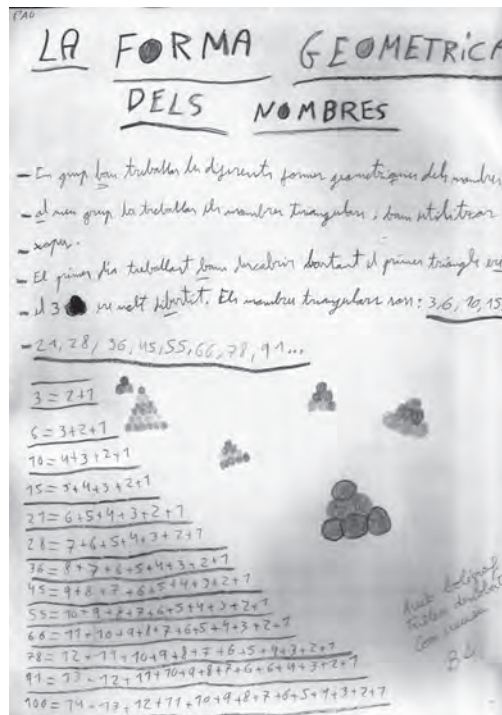 PAU
LA FORMA GEOMETRICA
DELS NOMBRES
- En grup bam treballar les diferents formes geometriques dels nombres
- al meu grup ha treballar els nombres triangulars i bam utilitzar
- xapes.
- El primer dia treballant bam descobrir bastant el primer triangle era
- el 3 molt dibertit. Els nombres triangulars son: 3, 6, 10, 15
- 21, 28, 36, 45, 55, 66, 78, 91...
3 = 2+1
6 = 3+2+1
10 = 4+3+2+1
15 = 5+4+3+2+1
21 = 6+5+4+3+2+1
28 = 7+6+5+4+3+2+1
36 = 8+7+6+5+4+3+2+1
45 = 9+8+7+6+5+4+3+2+1
55 = 10+9+8+7+6+5+4+3+2+1
66 = 11+10+9+8+7+6+5+4+3+2+1
78 = 12+11+10+9+8+7+6+5+4+3+2+1
91 = 13+12+11+10+9+8+7+6+6+4+3+2+1
100 = 14+13+12+11+10+9+8+7+6+5+4+3+2+1